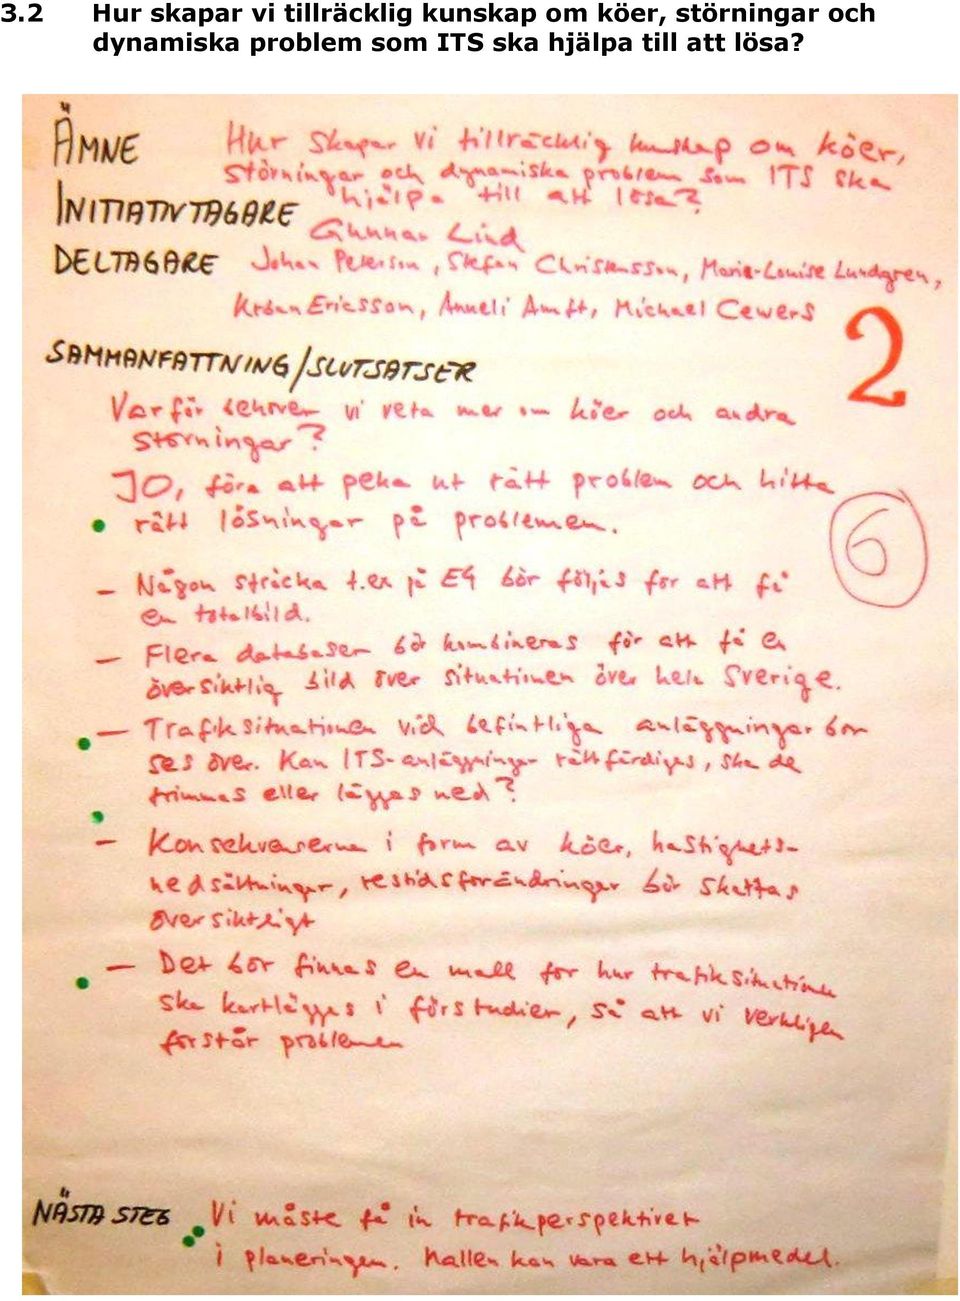 3.2 Hur skapar vi tillräcklig kunskap om köer, störningar och
dynamiska problem som ITS ska hjälpa till att lösa?
ÄMNE Hur skapar vi tillräcklig kunskap om köer,
störningar och dynamiska problem som ITS ska
hjälpa till att lösa?
INITIATIVTAGARE
Gunnar Lind
DELTAGARE Johan Peterson, Stefan Christensson, Marie-Louise Lundgren,
Ericsson, Anneli Amft, Michael Cewers
2
SAMMANFATTNING/SLUTSATSER
Varför behöver vi veta mer om köer och andra
störningar?
JO, för att peka ut rätt problem och hitta
rätt lösningar på problemen.
6
- Någon sträcka t.ex på E4 bör följas för att få
en totalbild.
- Flera databaser bör kombineras för att få en
översiktlig bild över situationen över hela Sverige.
- Trafiksituationen vid befintliga anläggningar bör
ses över. Kan ITS-anläggningar rättfärdigas, ska de
trimmas eller läggas ned?
- Konsekvenserna i form av köer, hastighets-
nedsättningar, restidsförändringar bör skattas
översiktligt
- Det bör finnas en mall för hur trafiksituationen
ska kartläggas i förstudier, så att vi verkligen
förstår problemen
NÄSTA STEG Vi måste få in trafikperspektivet
i planeringen. Mallen kan vara ett hjälpmedel.